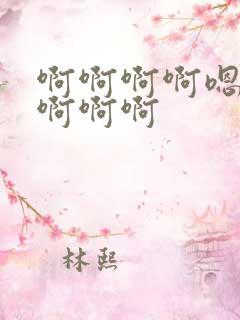 啊啊啊啊嗯
啊啊啊
林熙